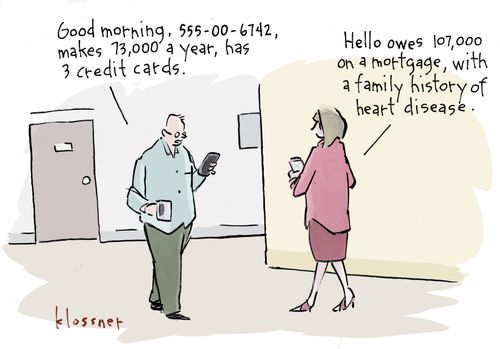 Good morning, 555-00-6742,
makes 73,000 a year, has
3 credit cards.
Hello owes 107,000
on a mortgage, with
a family history of
heart disease.
klossner